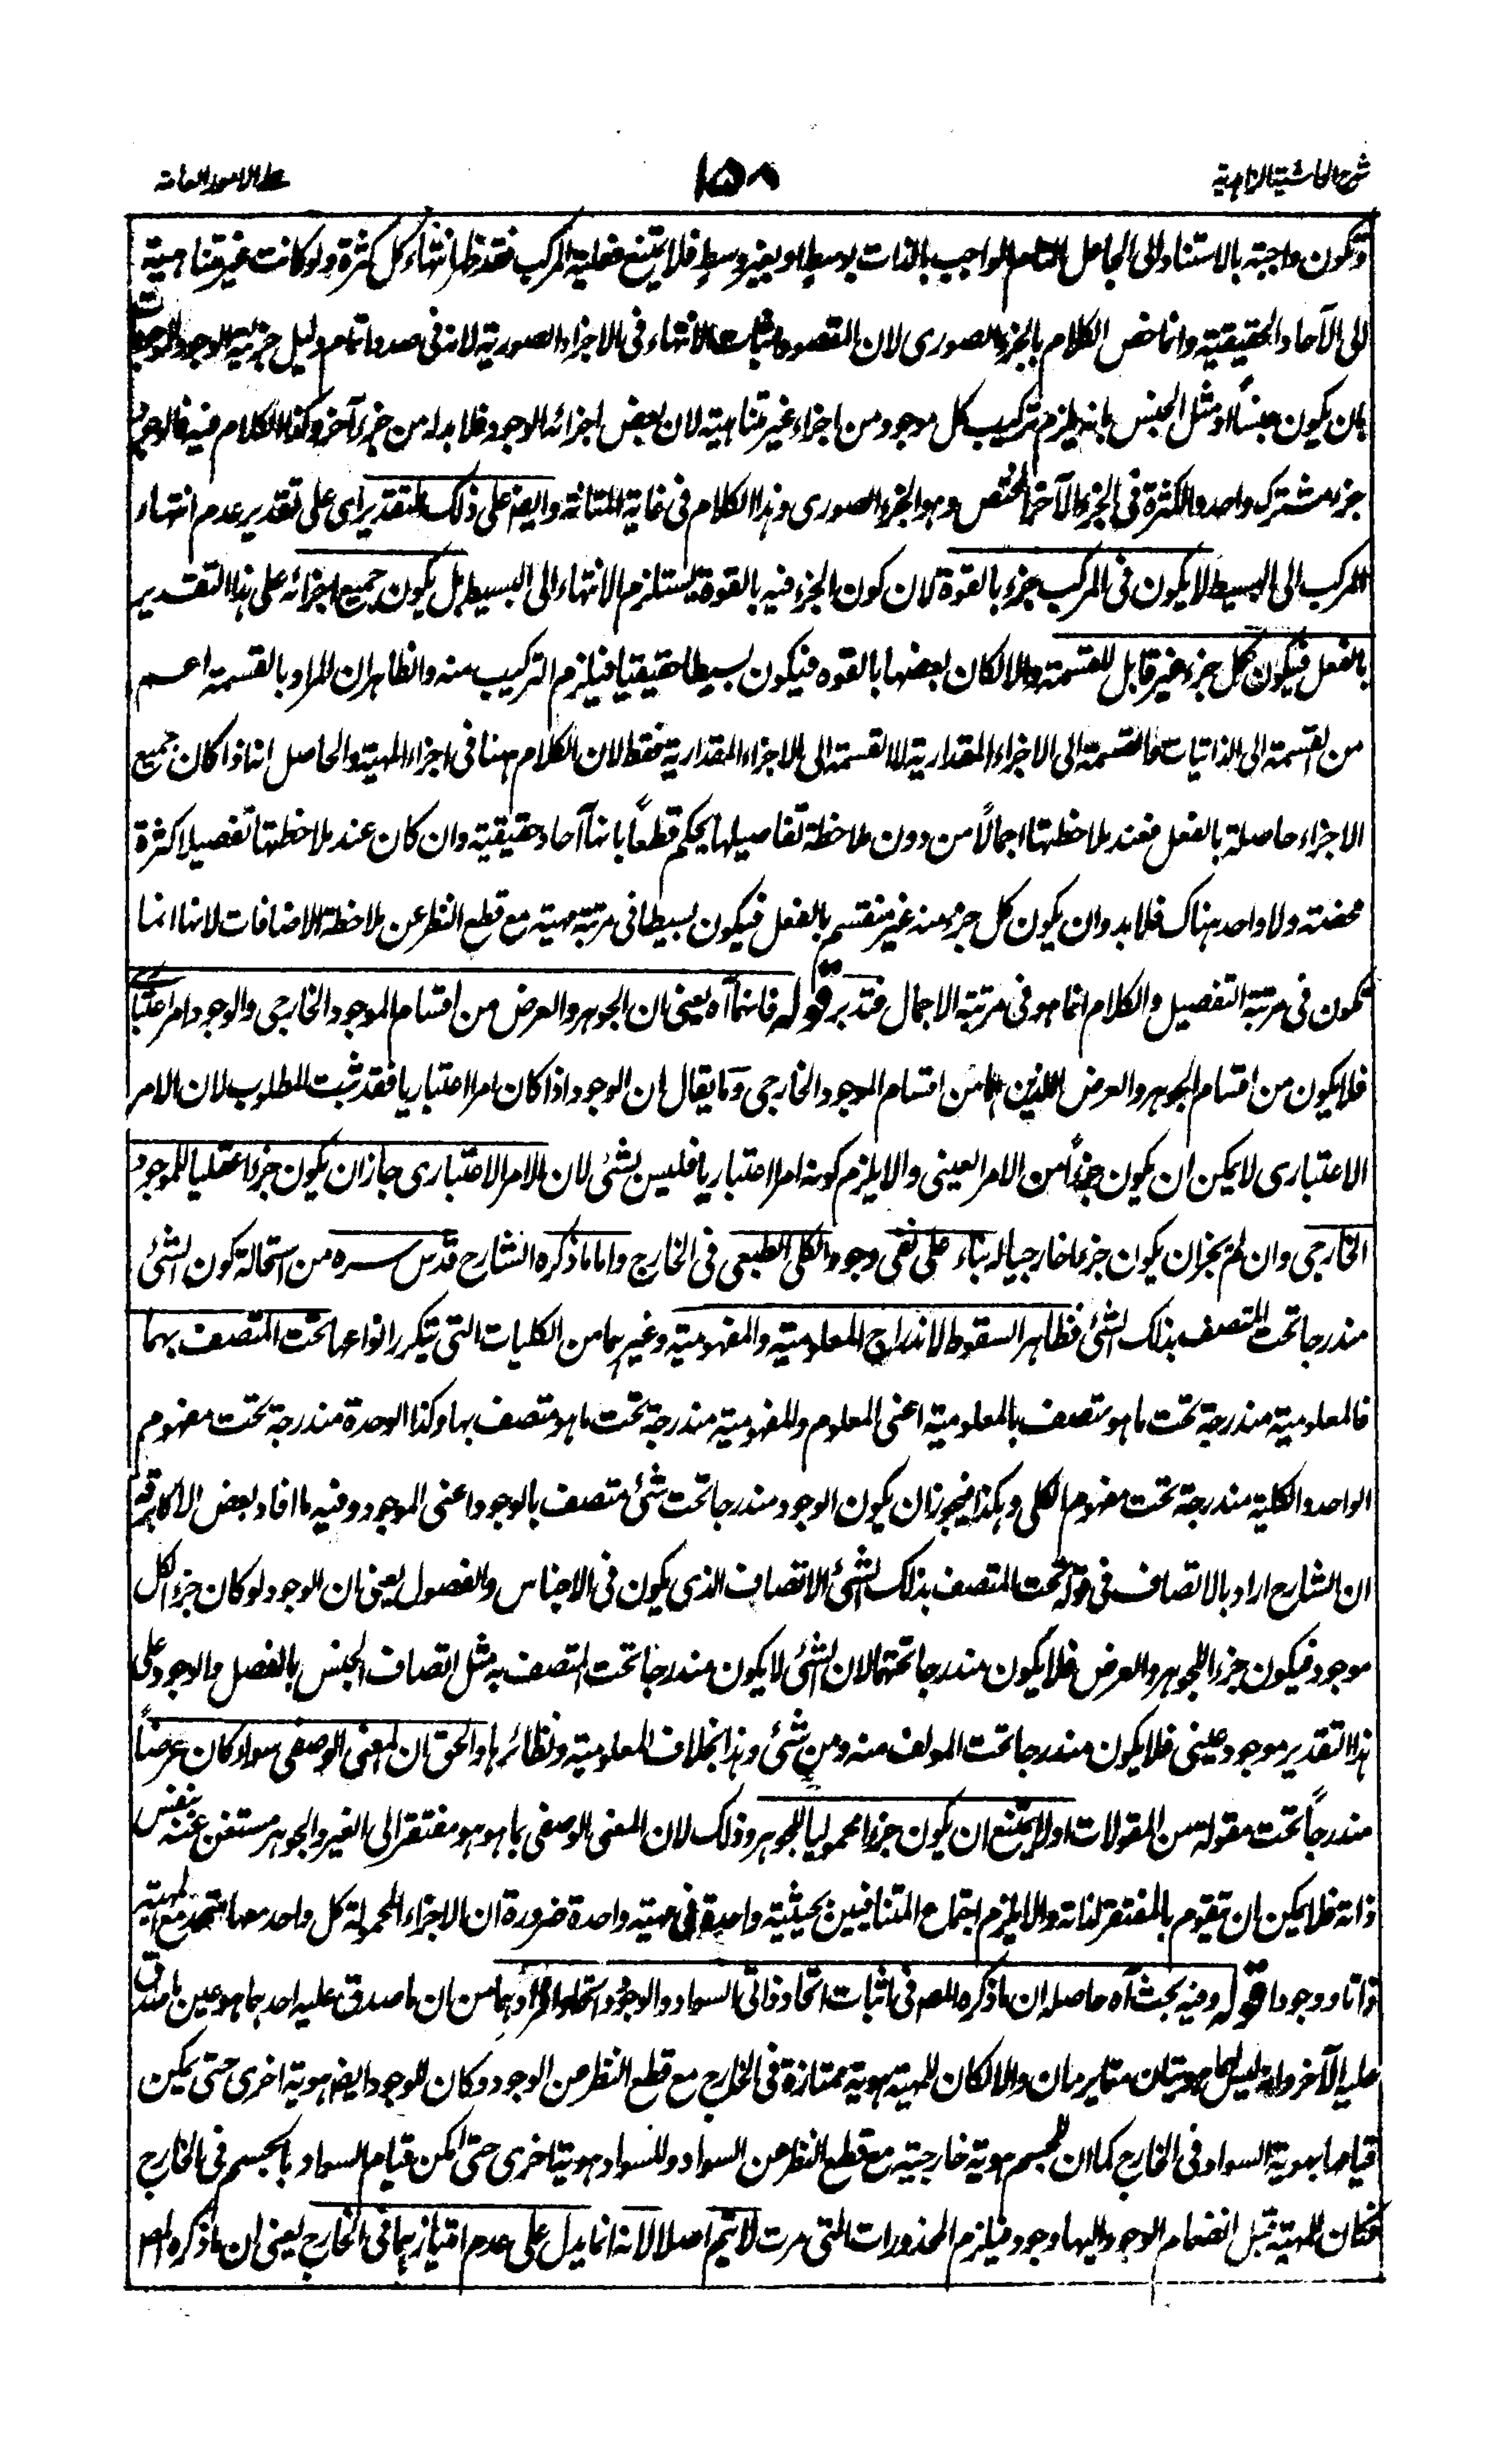 شرح الحاشية الزاهدية
١٥٨
على الامور العامة
وتكون واجبة بالاستناد الى الجاعل التام الواجب بالذات بوسط او بغير وسط فلا يمتنع فعلية المركب فقد ظهر انتهاء كل كثرة ولو كانت غير متناهية
الى الآحاد الحقيقية وانما خص الكلام بالجزء الصورى لان المقصود اثبات الانتهاء فى الاجزاء الصورية لانه فى صدد اتمام دليل جزئية الوجود للموجودات
بان يكون جنساً او مثل الجنس بانه يلزم تركيب كل موجود من اجزاء غير متناهية لان بعض اجزائه الوجود فلا بد له من جزء آخر وكذا الكلام فيه فالوجود
جزء مشترك واحد والكثرة فى الجزء الآخر المختص وهو الجزء الصورى وهذا الكلام فى غاية المتانة وايضا على ذلك التقدير اى على تقدير عدم انتهاء
المركب الى البسيط لا يكون فى المركب جزء بالقوة لان كون الجزء فيه بالقوة يستلزم الانتهاء الى البسيط بل يكون جميع اجزائه على هذا التقدير
بالفعل فيكون كل جزء غير قابل للقسمة والا لكان بعضها بالقوه فيكون بسيطا حقيقيا فيلزم التركيب منه والظاهر ان المراد بالقسمة اعم
من القسمة الى الذاتيات والقسمة الى الاجزاء المقدارية لا القسمة الى الاجزاء المقدارية فقط لان الكلام ههنا فى اجزاء المهية والحاصل انا اذا كان جميع
الاجزاء حاصلة بالفعل فعند ملاحظتها اجمالاً من دون ملاحظة تفاصيلها يحكم قطعاً بانها آحاد حقيقية وان كان عند ملاحظتها تفصيلا كثرة
محضة ولا واحد هناك فلا بد وان يكون كل جزء منه غير منقسم بالفعل فيكون بسيطا فى مرتبة مهية مع قطع النظر عن ملاحظة الاضافات لانها انما
تكون فى مرتبة التفصيل والكلام انما هو فى مرتبة الاجمال فتدبر قوله فانهما آه يعنى ان الجوهر والعرض من اقسام الموجود الخارجى والوجود امر اعتبارى
فلا يكون من اقسام الجوهر والعرض اللذين هما من اقسام الموجود الخارجى وما يقال ان الوجود اذا كان امرا اعتباريا فقد ثبت المطلوب لان الامر
الاعتبارى لا يمكن ان يكون جزءاً من الامر العينى والا يلزم كونه امرا اعتباريا فليس بشئ لان الامر الاعتبارى جاز ان يكون جزءا عقليا للموجود
الخارجى وان لم يجز ان يكون جزءا خارجيا له بناء على نفى وجود الكلى الطبعى فى الخارج واما ما ذكره الشارح قدس سره من استحالة كون الشئ
مندرجا تحت المتصف بذلك الشئ فظاهر السقوط لاندراج المعلومية والمفهومية وغيرهما من الكليات التى يتكرر انواعها تحت المتصف بهما
فالمعلومية مندرجة تحت ما هو متصف بالمعلومية اعنى المعلوم والمفهومية مندرجة تحت ما هو متصف بها وكذا الوحدة مندرجة تحت مفهوم
الواحد والكلية مندرجة تحت مفهوم الكلى وهكذا فيجوز ان يكون الوجود مندرجا تحت شئ متصف بالوجود اعنى الموجود وفيه ما افاد بعض الاكابر قد
ان الشارح اراد بالاتصاف فى قوله تحت المتصف بذلك الشئ الاتصاف الذى يكون فى الاجناس والفصول يعنى ان الوجود لو كان جزء الكل
موجود فيكون جزءا للجوهر والعرض فلا يكون مندرجا تحتهما لان الشئ لا يكون مندرجا تحت المتصف به مثل اتصاف الجنس بالفصل والوجود على
هذا التقدير موجود عينى فلا يكون مندرجا تحت المولف منه ومن شئ وهذا بخلاف المعلومية ونظائرها والحق ان المعنى الوصفى سواء كان عرضاً
مندرجاً تحت مقولة من المقولات اولا يمتنع ان يكون جزءا محموليا للجوهر وذلك لان المعنى الوصفى بما هو هو مفتقر الى الغير والجوهر مستغن عنه بنفس
ذاته فلا يمكن ان يتقوم بالمفتقر لذاته والا يلزم اجتماع المتنافيين بحيثية واحدة فى مهية واحدة ضرورة ان الاجزاء المحمولة كل واحد منها متحد مع المهية
ذاتا ووجودا قوله وفيه بحث آه حاصله ان ما ذكره المصم فى اثبات اتحاد ذاتى السواد والوجود واتحاد افرادهما من ان ما صدق عليه احدهما هو عين ما صدق
عليه الآخر وانه ليس لهما هويتان متمايزتان والا لكان للمهية هوية ممتازة فى الخارج مع قطع النظر عن الوجود وكان للوجود ايضا هوية اخرى حتى يمكن
قيامها بهوية السواد فى الخارج كما ان للجسم هوية خارجية مع قطع النظر عن السواد وللسواد هوية اخرى حتى امكن قيام السواد بالجسم فى الخارج
فكان للمهية قبل انضمام الوجود اليها وجود فيلزم المحذورات التى مرت لا يتم اصلا لانه انما يدل على عدم امتيازهما فى الخارج يعنى ان ما ذكره المصم